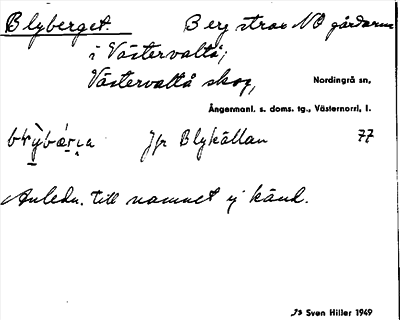 Blyberget. Berg strax NO gårdarna
i Västervalta;
Västervalta skog, Nordingrå sn,
Ångermanl. s. doms. tg., Västernorrl. l.
Jfr Blykällan 77
Anledn. till namnet ej känd.
Sven Hiller 1949